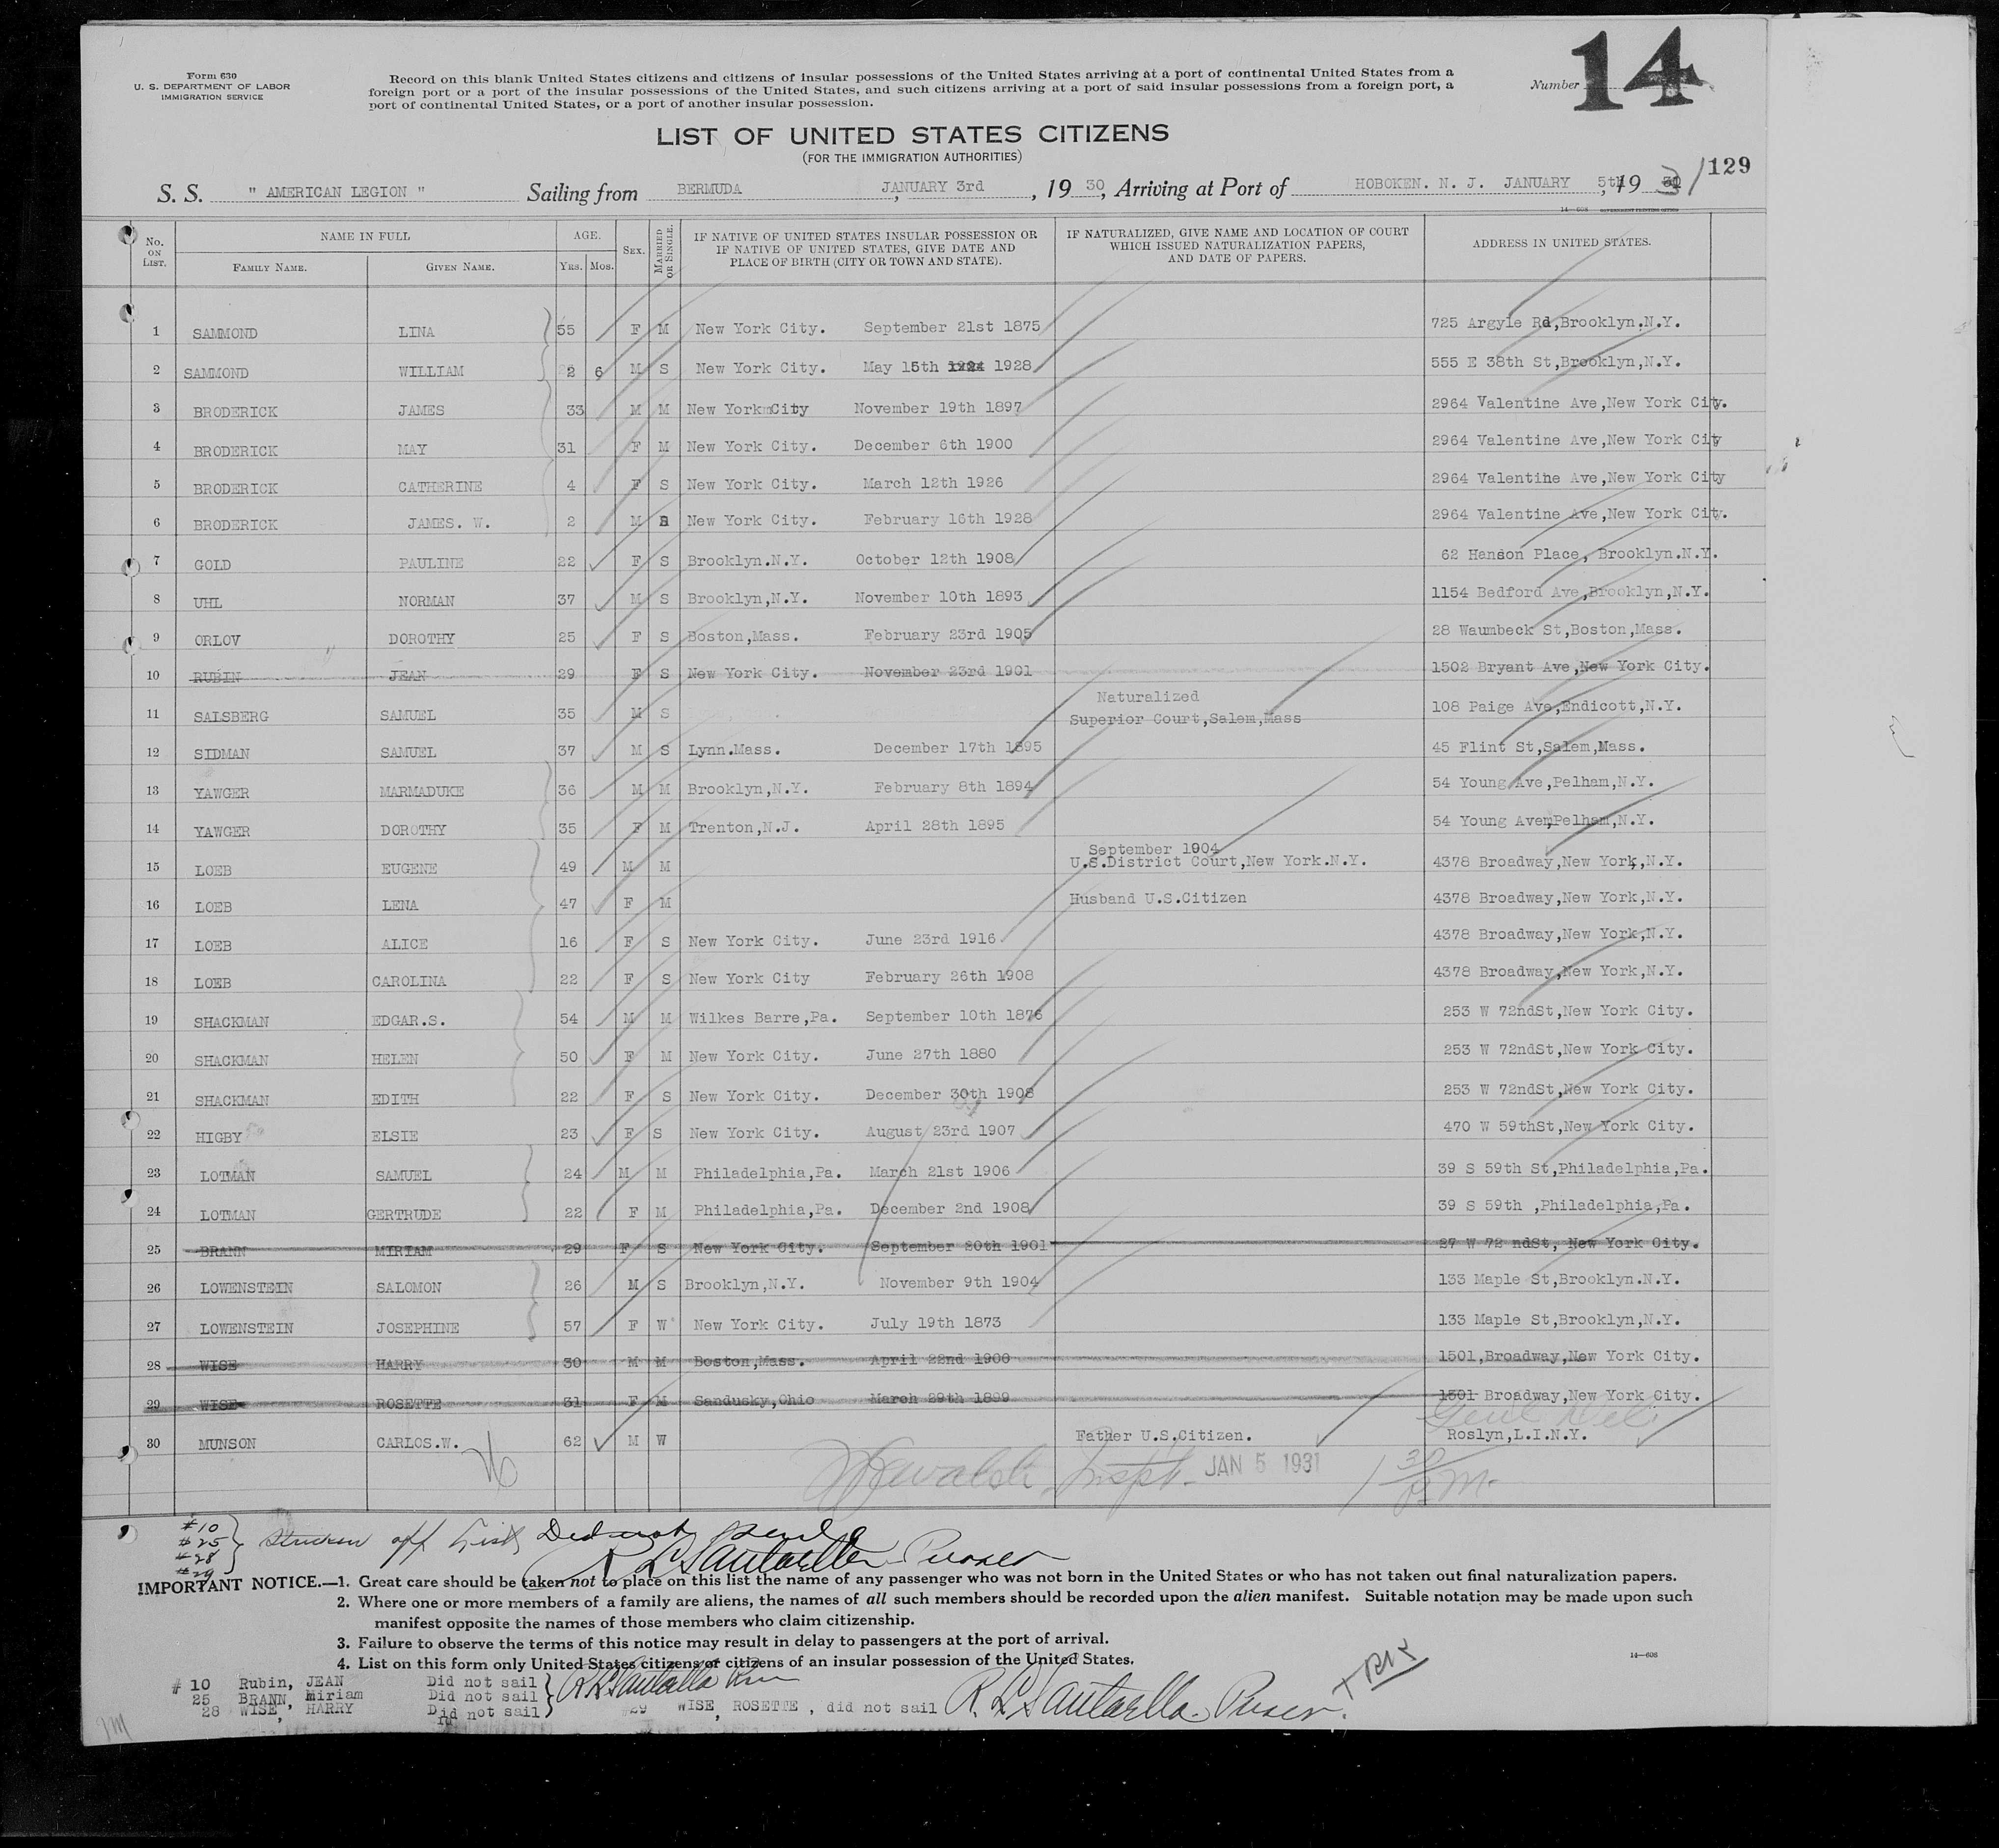 Form 630
U. S. DEPARTMENT OF LABOR
IMMIGRATION SERVICE
Record on this blank United States citizens and citizens of insular possessions of the United States arriving at a port of continental United States from a
foreign port or a port of the insular possessions of the United States, and such citizens arriving at a port of said insular possessions from a foreign port, a
port of continental United States, or a port of another insular possession.
Number 14
LIST OF UNITED STATES CITIZENS
(FOR THE IMMIGRATION AUTHORITIES)
129
S. S. " AMERICAN LEGION " Sailing from BERMUDA JANUARY 3rd, 19 30, Arriving at Port of HOBOKEN. N. J. JANUARY 5th, 19 31
14—608 GOVERNMENT PRINTING OFFICE
No. ON LIST. NAME IN FULL FAMILY NAME. GIVEN NAME. AGE. YRS. MOS. SEX. MARRIED OR SINGLE. IF NATIVE OF UNITED STATES INSULAR POSSESSION OR IF NATIVE OF UNITED STATES, GIVE DATE AND PLACE OF BIRTH (CITY OR TOWN AND STATE). IF NATURALIZED, GIVE NAME AND LOCATION OF COURT WHICH ISSUED NATURALIZATION PAPERS, AND DATE OF PAPERS. ADDRESS IN UNITED STATES.
1 SAMMOND LINA 55 F M New York City. September 21st 1875 725 Argyle Rd,Brooklyn.N.Y.
2 SAMMOND WILLIAM 2 6 M S New York City. May 15th 1928 555 E 38th St,Brooklyn,N.Y.
3 BRODERICK JAMES 33 M M New YorkmCity November 19th 1897 2964 Valentine Ave,New York City.
4 BRODERICK MAY 31 F M New York City. December 6th 1900 2964 Valentine Ave,New York City
5 BRODERICK CATHERINE 4 F S New York City. March 12th 1926 2964 Valentine Ave,New York City
6 BRODERICK JAMES. W. 2 M New York City. February 16th 1928 2964 Valentine Ave,New York City.
7 GOLD PAULINE 22 F S Brooklyn.N.Y. October 12th 1908 62 Hanson Place, Brooklyn.N.Y.
8 UHL NORMAN 37 M S Brooklyn,N.Y. November 10th 1893 1154 Bedford Ave,Brooklyn,N.Y.
9 ORLOV DOROTHY 25 F S Boston,Mass. February 23rd 1905 28 Waumbeck St,Boston,Mass.
10 RUBIN JEAN 29 F S New York City. November 23rd 1901 1502 Bryant Ave,New York City.
11 SALSBERG SAMUEL 35 M S Naturalized Superior Court,Salem,Mass 108 Paige Ave,Endicott,N.Y.
12 SIDMAN SAMUEL 37 M S Lynn.Mass. December 17th 1895 45 Flint St,Salem,Mass.
13 YAWGER MARMADUKE 36 M M Brooklyn,N.Y. February 8th 1894 54 Young Ave,Pelham,N.Y.
14 YAWGER DOROTHY 35 F M Trenton,N.J. April 28th 1895 54 Young Ave,Pelham,N.Y.
15 LOEB EUGENE 49 M M September 1904 U.S.District Court,New York.N.Y. 4378 Broadway,New York,N.Y.
16 LOEB LENA 47 F M Husband U.S.Citizen 4378 Broadway,New York,N.Y.
17 LOEB ALICE 16 F S New York City. June 23rd 1916 4378 Broadway,New York,N.Y.
18 LOEB CAROLINA 22 F S New York City February 26th 1908 4378 Broadway,New York,N.Y.
19 SHACKMAN EDGAR.S. 54 M M Wilkes Barre,Pa. September 10th 1876 253 W 72ndSt,New York City.
20 SHACKMAN HELEN 50 F M New York City. June 27th 1880 253 W 72ndSt,New York City.
21 SHACKMAN EDITH 22 F S New York City. December 30th 1908 253 W 72ndSt,New York City.
22 HIGBY ELSIE 23 F S New York City. August 23rd 1907 470 W 59thSt,New York City.
23 LOTMAN SAMUEL 24 M M Philadelphia,Pa. March 21st 1906 39 S 59th St,Philadelphia,Pa.
24 LOTMAN GERTRUDE 22 F M Philadelphia,Pa. December 2nd 1908 39 S 59th ,Philadelphia,Pa.
25 BRANN MIRIAM 29 F S New York City. September 20th 1901 27 W 72 ndSt, New York City.
26 LOWENSTEIN SALOMON 26 M S Brooklyn,N.Y. November 9th 1904 133 Maple St,Brooklyn.N.Y.
27 LOWENSTEIN JOSEPHINE 57 F W New York City. July 19th 1873 133 Maple St,Brooklyn,N.Y.
28 WISE HARRY 30 M M Boston,Mass. April 22nd 1900 1501,Broadway,New York City.
29 WISE ROSETTE 31 F M Sandusky,Ohio March 29th 1899 1501 Broadway,New York City.
Genl Del.
30 MUNSON CARLOS.W. 62 M W Father U.S.Citizen. Roslyn,L.I.N.Y.
Inspt. JAN 5 1931 1 30 PM.
#10
#25
#28
#29
Stricken off list, Did not
R L Santaella Purser
IMPORTANT NOTICE.—1. Great care should be taken not to place on this list the name of any passenger who was not born in the United States or who has not taken out final naturalization papers.
2. Where one or more members of a family are aliens, the names of all such members should be recorded upon the alien manifest. Suitable notation may be made upon such
manifest opposite the names of those members who claim citizenship.
3. Failure to observe the terms of this notice may result in delay to passengers at the port of arrival.
4. List on this form only United States citizens or citizens of an insular possession of the United States.
14—608
# 10 Rubin, JEAN Did not sail
25 BRANN, Miriam Did not sail
28 WISE, HARRY Did not sail
R L Santaella
#29 WISE, ROSETTE , did not sail R. L Santaella Purser.